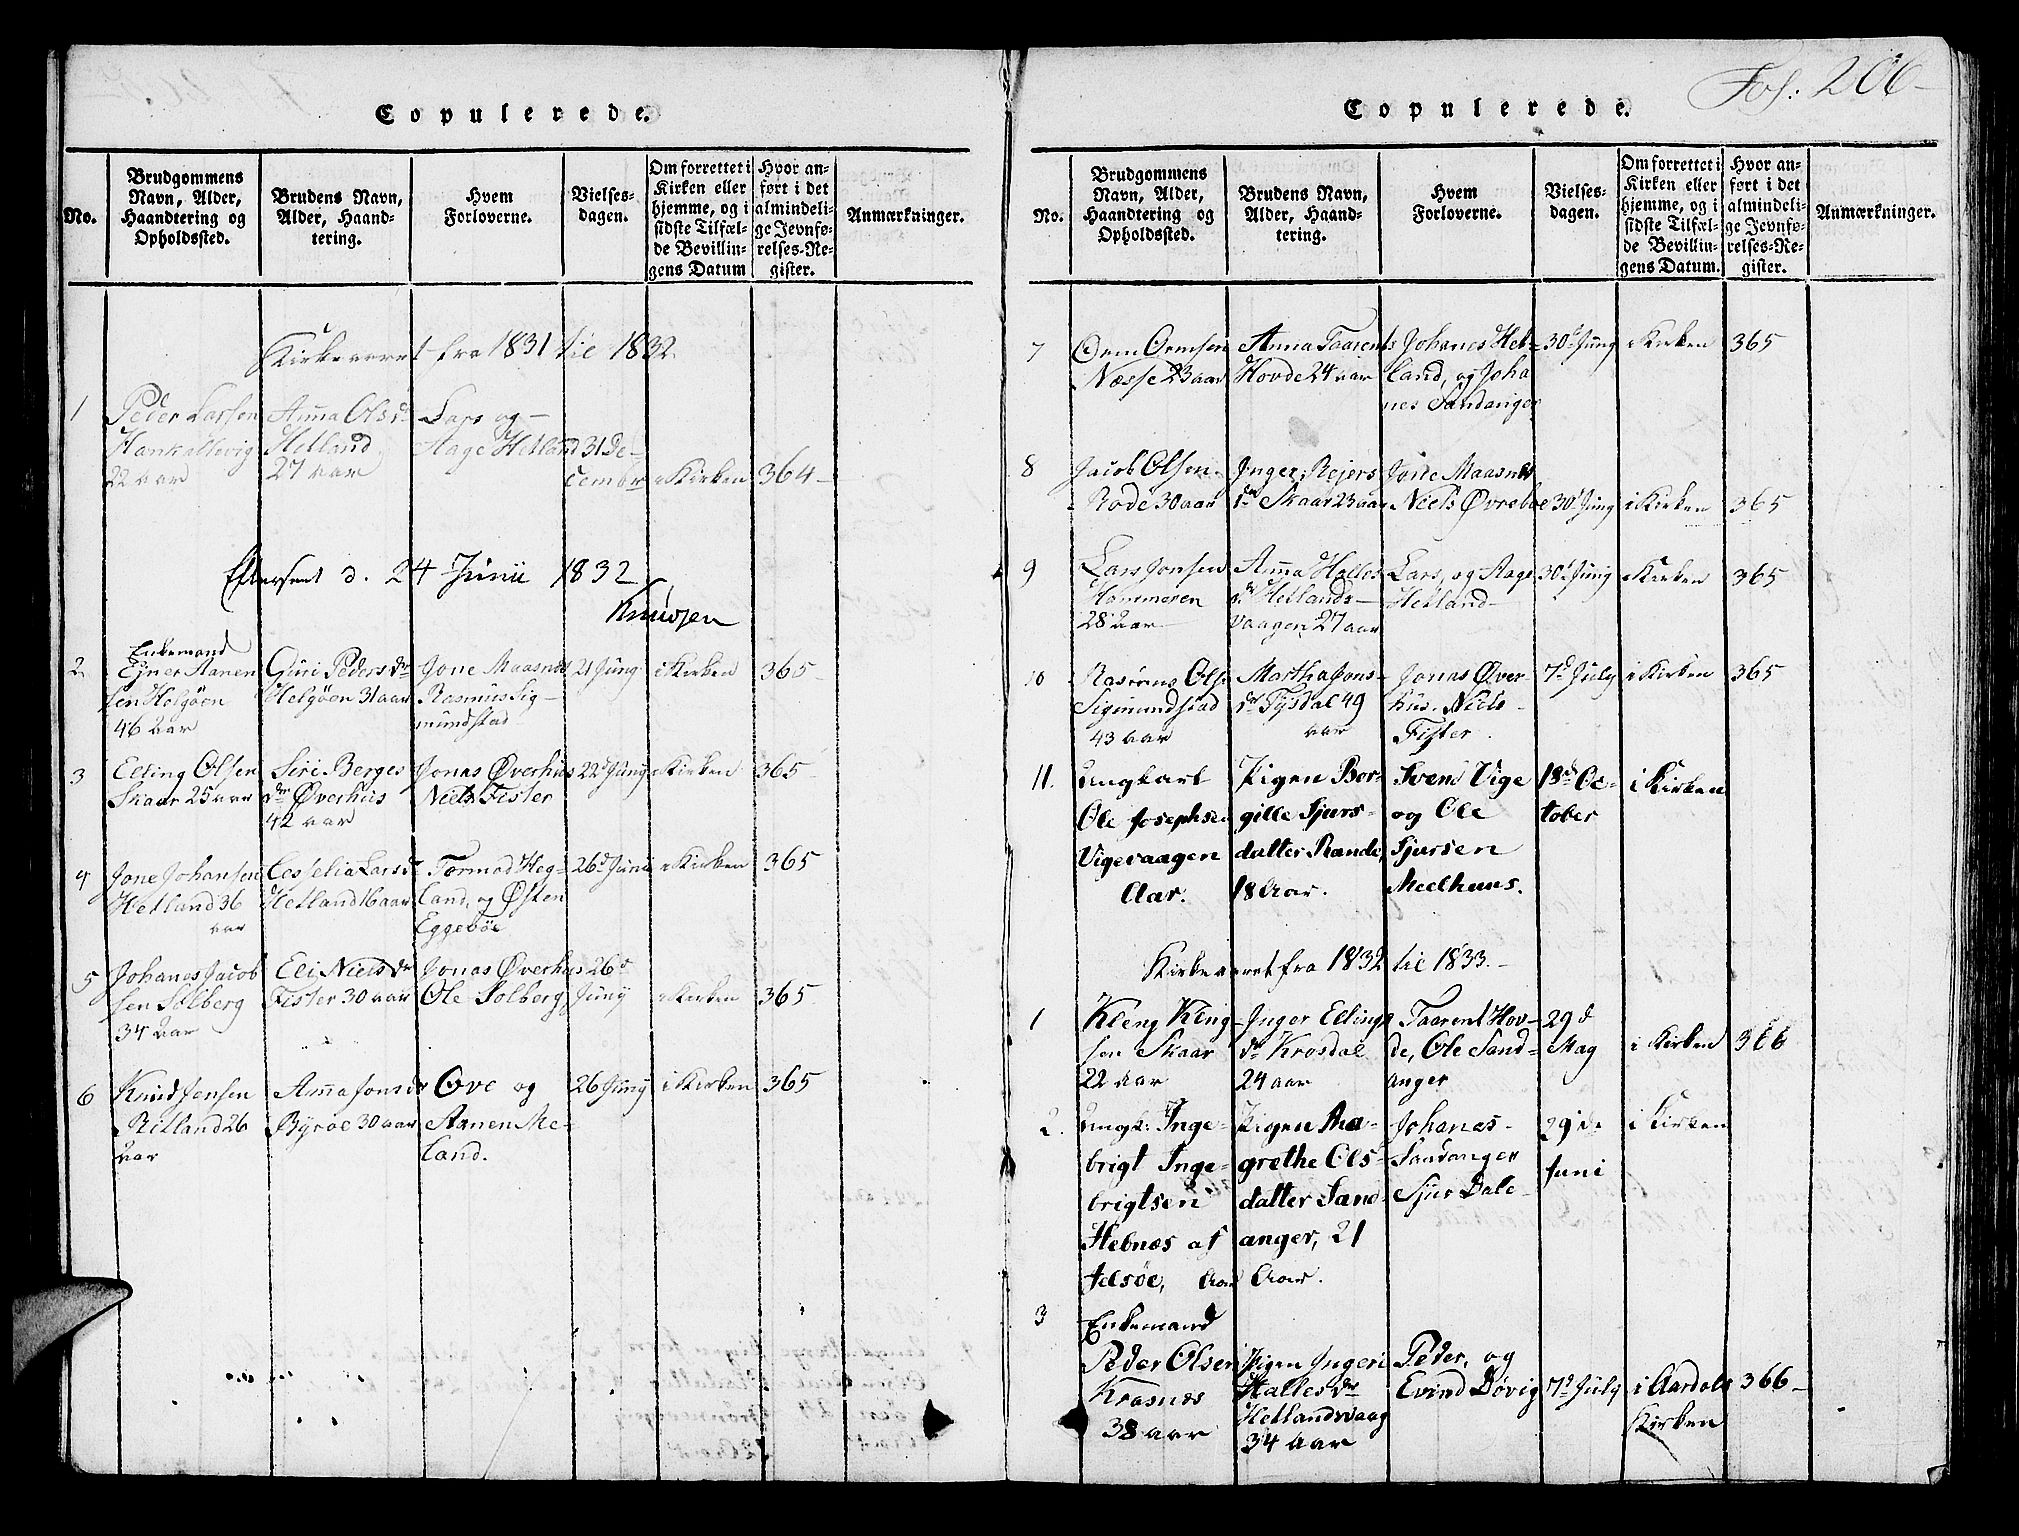 Copulerede.
No.
Brudgommens
Navn, Alder,
Haandtering og
Opholdssted.
Brudens Navn,
Alder, Haand-
tering.
Hvem
Forloverne.
Vielses-
dagen.
Om forrettet i
Kirken eller
hjemme, og i
sidste Tilfæl-
de Bevillin-
gens Datum
Hvor an-
ført i det
almindeli-
ge Jevnfø-
relses-Re-
gister.
Anmærkninger.
Kirkeaaret fra 1831 til 1832
1
Peder Larsen
Hankallevig
22 aar
Anna Olsdr
Hetland
27 aar
Lars og
Aage Hetland
31 De-
cembr
i Kirken
364
Efterseet d. 24 Junii 1832
Knudsen
2
Enkemand
Ejner Aanen
sen Helgøen
46 aar
Guri Pedersdr
Helgøen 31 aar
Jone Maasnes
Rasmus Sig-
mundstad
21 Juny
i Kirken
365
3
Elling Olsen
Skaar 25 aar
Siri Berges
dr Øverhus
42 aar
Jonas Øverhus
Niels Fister
22d Juny
i Kirken
365
4
Jone Johansen
Hetland 36
aar
Cesselia Larsd
Hetland 16 aar
Tormod Heg-
land, og Østen
Eggebøe
26d Juni
i Kirken
365
5
Johanes Jacob
sen Solberg
34 aar
Eli Nielsdr
Fister 30 aar
Jonas Øverhus
Ole Solberg
26d
Juny
i Kirken
365
6
Knud Jensen
Ritland 26
aar
Anna Jonsdr
Byrøe 30 aar
Ove og
Aanen Me-
land.
26 Juny
i Kirken
365
Fol: 206
Copulerede.
No.
Brudgommens
Navn, Alder,
Haandtering og
Opholdssted.
Brudens Navn,
Alder, Haand-
tering.
Hvem
Forloverne.
Vielses-
dagen.
Om forrettet i
Kirken eller
hjemme, og i
sidste Tilfæl-
de Bevillin-
gens Datum.
Hvor an-
ført i det
almindeli-
ge Jevnfø-
relses-Re-
gister.
Anmærkninger.
7
Orm Ormsen
Næsse 23 aar
Anna Taarents
Hovde 24 aar
Johanes Het-
land, og Joha
nes Sandanger
30d Juny
i Kirken
365
8
Jacob Olsen
Rode 30 aar
Inger Rejers
dr Skaar 23 aar
Jone Maasnes
Niels Øvreboe
30d Juny
i Kirken
365
9
Lars Jonsen
Hammeren
28 aar
Anna Halles
dr Hetlands-
vaagen 27 aar
Lars, og Aage
Hetland
30d Juny
i Kirken
365
10
Rasmus Ols
Sigmundstad
43 aar
Martha Jons-
dr Tysdal 49
aar
Jonas Øver
hus. Niels
Fister.
7d July
i Kirken
365
11.
Ungkarl
Ole Josephsen
Vigevaagen
Aar.
Pigen Bor-
gille Sjurs-
datter Rande,
18 Aar.
Svend Vige
og Ole
Sjursen
Meelhuus.
18de Oc-
tober
i Kirken
Kirkeaaret fra 1832 til 1833.
1
Kleng Kleng
sen Skaar
22 aar
Inger Ellings
dr Krosdal
24 aar
Taarent Hov-
de, Ole Sand-
anger
29d
May
i Kirken
366
2.
Ungk. Inge-
brigt Inge-
brigtsen
Hebnæs af
Jelsøe, Aar
Pigen Ma-
grethe Ols-
datter Sand-
anger, 21
Aar.
Johanes
Sandanger
Sjur Dale
29de
Juni
i Kirken
3
Enkemand
Peder Olsen
Krasnæs
38 aar
Pigen Ingeri
Hallesdr
Hetlandsvaag
34 aar
Peder, og
Evind Døvig
7d July
i Aardals
Kirken
366